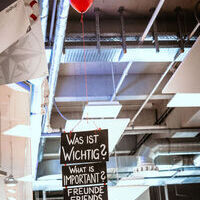 WAS IST
WICHTIG?
WHAT IS
IMPORTANT?
FREUNDE
FRIENDS